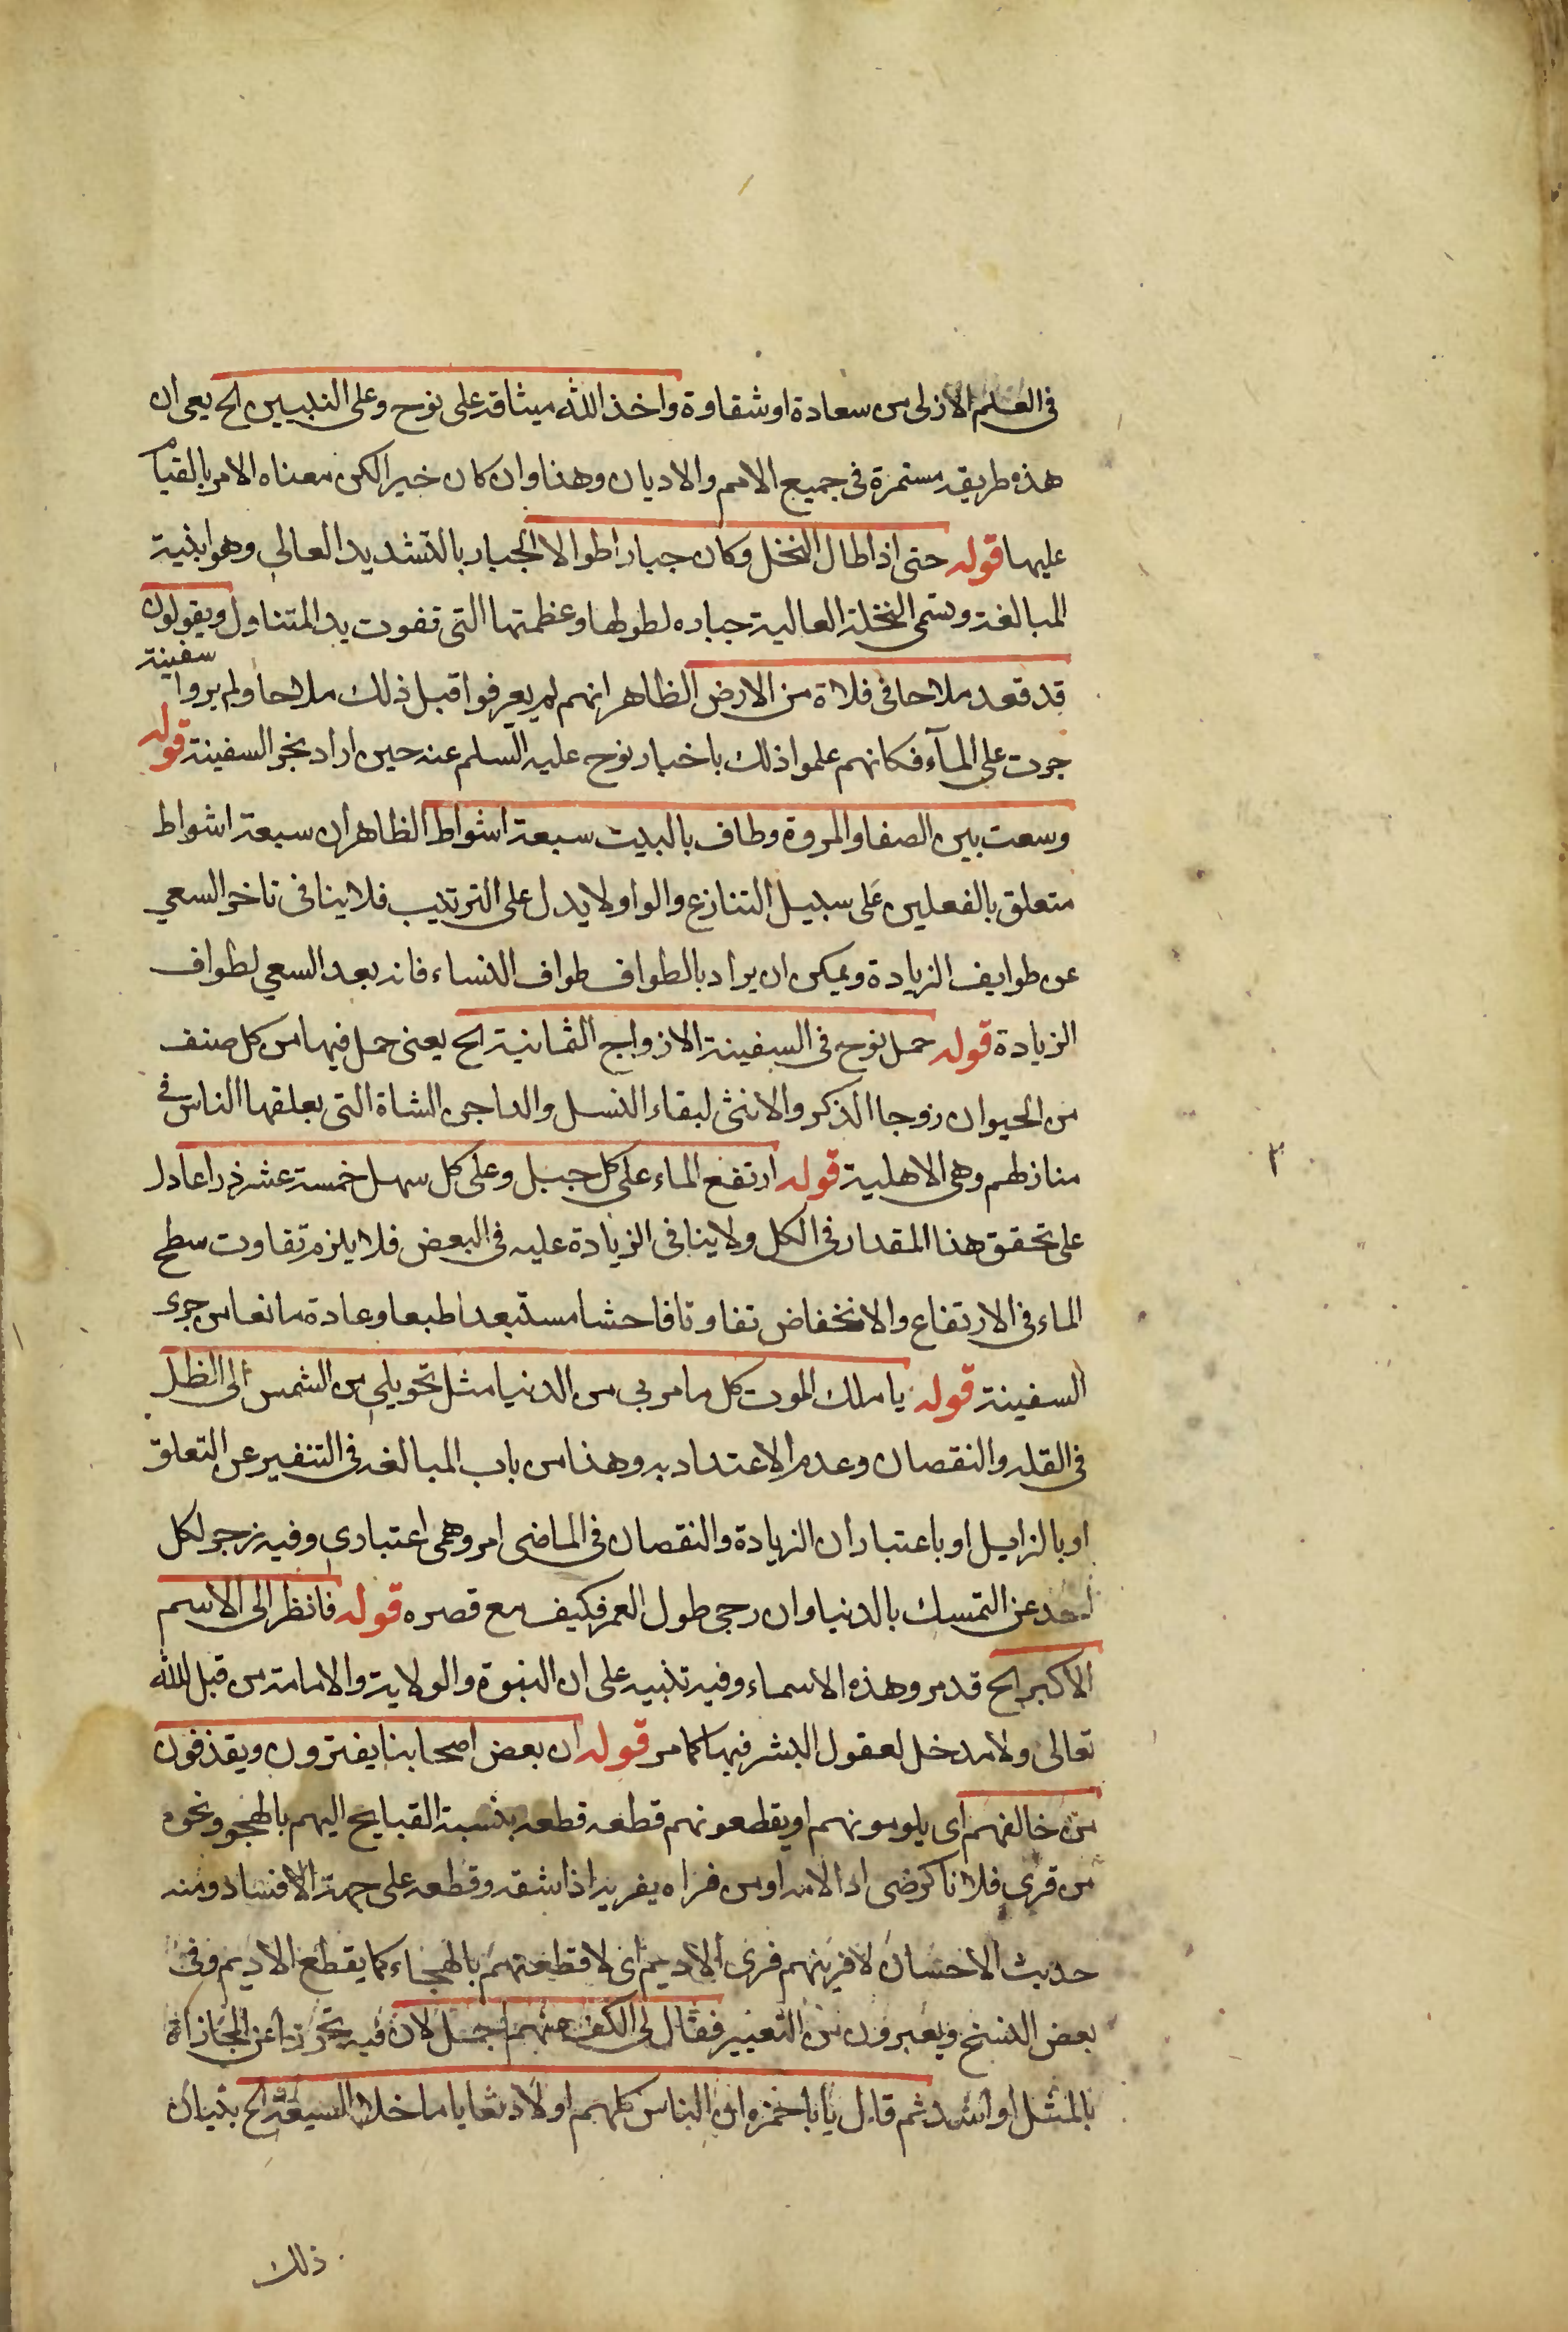 فى العلم الازلى من سعادة او شقاوة واخذ الله ميثاقه على نوح وعلى النبيين الخ يعى ان
هذه طريقه مستمرة فى جميع الامم والاديان وهذا وان كان خبرا لكن معناه الامر بالقيام
عليها قوله حتى اذا طال النخل وكان جبارا طوالا الجبار بالتشديد العالي وهو ابنية
المبالغة وتسمى النخلة العالية جباره لطولها وعظمتها التى تفوت يد المتناول ويقولون
قد قعد ملاحا فى فلاة من الارض الظاهر انهم لم يعرفوا قبل ذلك ملاحا ولم يروا سفينة
جرت على المآء فكانهم علموا ذلك باخبار نوح عليه السلم عنه حين اراد نجر السفينة قوله
وسعت بين الصفا والمروة وطاف بالبيت سبعة اشواط الظاهر ان سبعة اشواط
متعلق بالفعلين على سبيل التنازع والواو لا يدل على الترتيب فلا ينافى تاخر السعي
عن طوايف الزيادة ويمكن ان يراد بالطواف طواف النساء فانه بعد السعي لطواف
الزيادة قوله حمل نوح فى السفينة الازواج الثمانية الخ يعنى حمل فيها من كل صنف
من الحيوان زوجا الذكر والانثى لبقاء النسل والداجن الشاة التى يعلفها الناس فى
منازلهم وهى الاهلية قوله ارتفع الماء على كل جبل وعلى كل سهل خمسة عشر ذراعا دل
على تحقق هذا المقدار فى الكل ولا ينافى الزيادة عليه فى البعض فلا يلزم تفاوت سطح
الماء فى الارتفاع والانخفاض تفاوتا فاحشا مستبعدا طبعا وعادة مانعا من جرى
السفينة قوله يا ملك الموت كل ما مر بى من الدنيا مثل تحويلي من الشمس الى الظل
فى القله والنقصان وعدم الاعتداد به وهذا من باب المبالغه فى التنفير عن التعلق
او بالزايل او باعتبار ان الزيادة والنقصان فى الماضى امر وهمى اعتباري وفيه زجر لكل
احد عن التمسك بالدنيا وان رجى طول العمر فكيف مع قصره قوله فانظر الى الاسم
الاكبر الخ قد مر وهذه الاسماء وفيه تنبيه على ان النبوة والولاية والامامة من قبل الله
تعالى ولا مدخل لعقول البشر فيها كما مر قوله ان بعض اصحابنا يفترون ويقذفون
من خالفهم اى يلومونهم او يقطعونهم قطعه قطعه بنسبة القبايح اليهم بالهجو ونحوه
من فرى فلانا كرضى اذا لامه او من فراه يفريه اذا شقه وقطعه على جهة الافساد ومنه
حديث الاحسان لافرينهم فرى الاديم اى لاقطعنهم بالهجاء كما يقطع الاديم وفى
بعض النسخ ويعبرون من التعيير فقال لى الكف عنهم اجمل لان فيه تحرزا عن المجازاة
بالمثل او اشد ثم قال يا با حمزه ان الناس كلهم اولاد بغايا ما خلا الشيعة الخ بيان
ذلك
٣